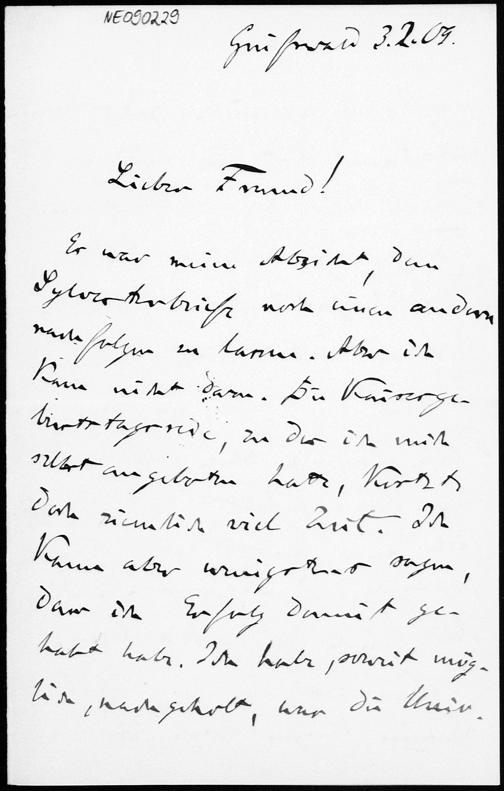 NE090229
Greifswald 3.2.09.
Lieber Freund!
Es war meine Absicht, dem
Sylvesterbriefe noch einen andern
nachfolgen zu lassen. Aber ich
kam nicht dazu. Die Kaiserge-
burtstagsrede, zu der ich mich
selbst angeboten hatte, kostete
doch ziemlich viel Zeit. Ich
kann aber wenigstens sagen,
dass ich Erfolg damit ge-
habt habe. Ich habe, soweit mög-
lich, nachgeholt, was die Univ.